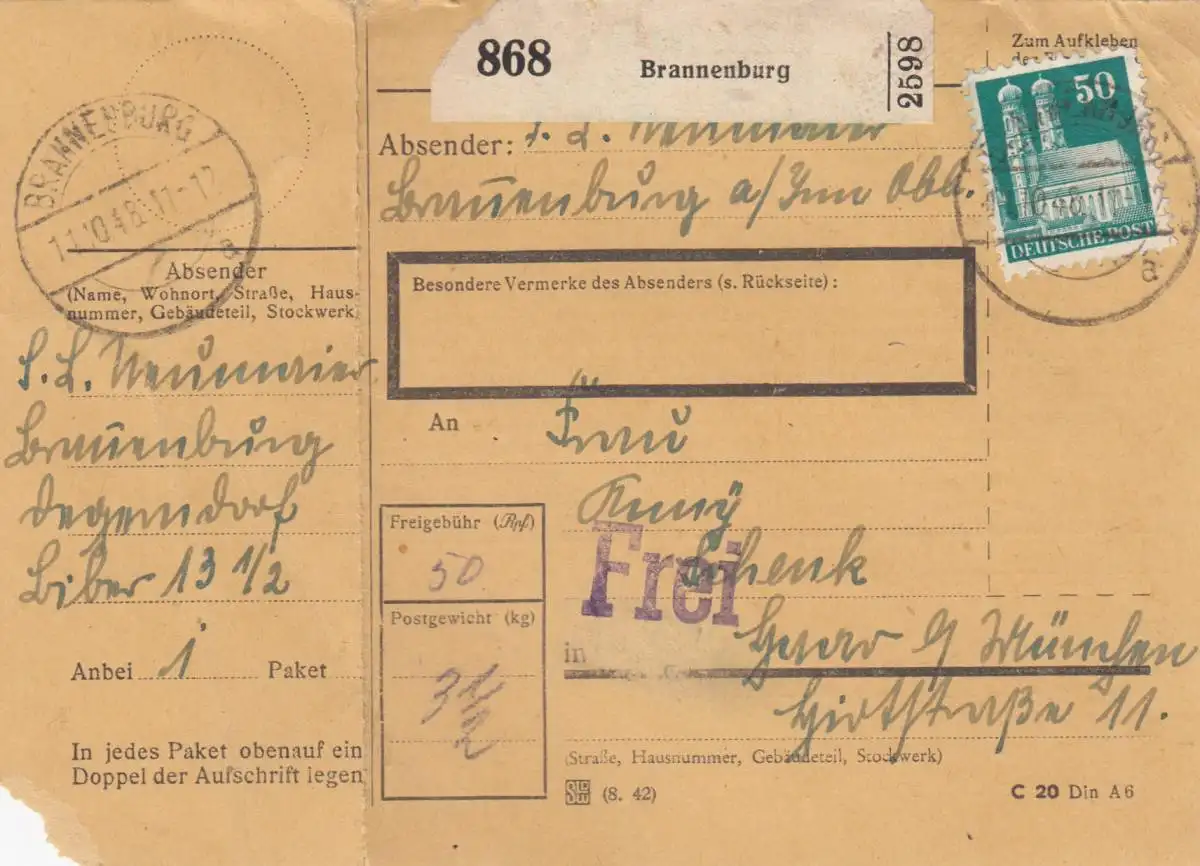 868 Brannenburg 2598
Zum Aufkleben
50
DEUTSCHE POST
BRANNENBURG
11.10.48.11-12
a
Absender: S. L. Neumaier
Brannenburg a/Inn Obb.
10.48.11
a
Absender
(Name, Wohnort, Straße, Haus-
nummer, Gebäudeteil, Stockwerk)
S. L. Neumaier
Brannenburg
Degerndorf
Biber 13 1/2
Anbei 1 Paket
In jedes Paket obenauf ein
Doppel der Aufschrift legen
Besondere Vermerke des Absenders (s. Rückseite):
An Frau
Anny
Schenk
Frei
in Haar b/ München
Hirtstraße 11.
(Straße, Hausnummer, Gebäudeteil, Stockwerk)
Freigebühr (Rpf)
50
Postgewicht (kg)
3 1/2
(8. 42)
C 20 Din A6